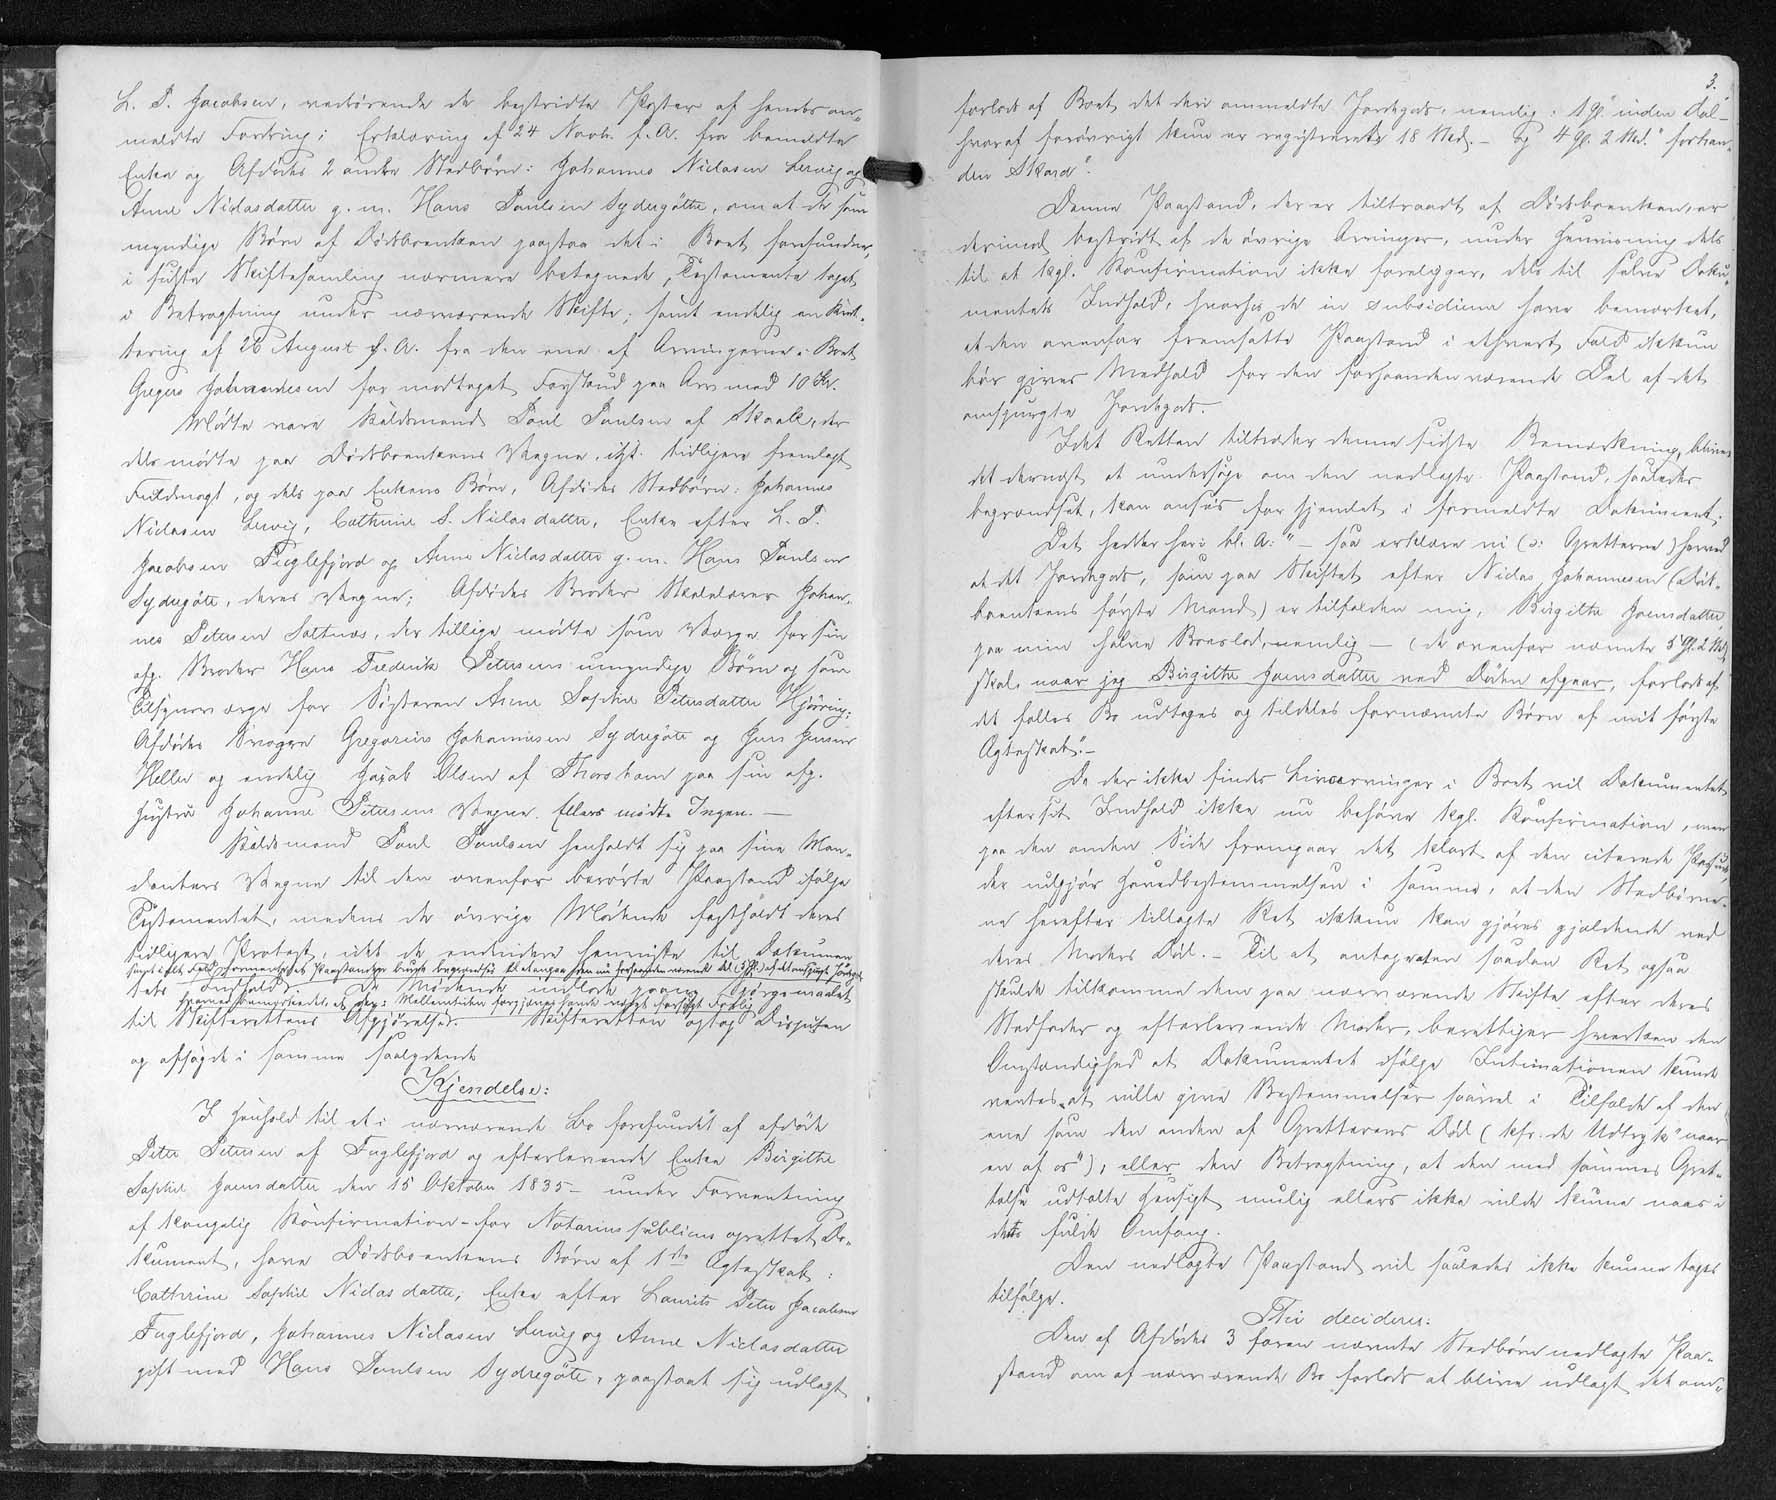 L. P. Jacobsen, vedrørende de bestridte Poster af hendes an-
meldte Fordring; Erklæring af 24 Novb. f. A. fra bemeldte
Enke og Afdødes 2 andre Stedbørn: Johannes Niclasen Lervig og
Anne Niclasdatter g. m. Hans Poulsen Sydregøtte, om at de som
myndige Børn af Dødsboenken paastaa det i Boet forefundne,
i sidste Skiftesamling nærmere betegnede, Testamente taget
i Betragtning under nærværende Skifte; samt endelig en Kvit-
tering af 26 August f. A. fra den ene af Arvingerne i Boet
Gregers Johannesen for modtaget Forskud paa Arv med 10 Kr.
Mødte vare Skildmand Poul Poulsen af Skaale, der
dels mødte paa Dødsboenkens Vegne, ifl. tidligere fremlagt
Fuldmagt, og dels paa Enkens Børn, Afdødes Stedbørn: Johannes
Niclasen Lervig, Cathrine S. Niclasdatter, Enke efter L. P.
Jacobsen Fuglefjord og Anne Niclasdatter g. m. Hans Poulsen
Sydregøte, deres Vegne; Afdødes Broder Skolelærer Johan-
nes Petersen Saltnæs, der tillige mødte som Værge for sin
afg. Broder Hans Frederik Petersens umyndige Børn og som
Tilsynsværge for Søsteren Anne Sophie Petersdatter Hjøring;
Afdødes Svogre Gregorius Johannesen Sydregøte og Jens Jensen
Heller og endelig Jacob Olsen af Thorshavn paa sin afg.
Hustru Johanne Petersens Vegne. Ellers mødte Ingen. —
Skildmand Poul Poulsen henholdt sig paa sine Man-
danters Vegne til den ovenfor berørte Paastand ifølge
Testamentet, medens de øvrige Mødende fastholdt deres
tidligere Protest, idet de endvidere henviste til Dokumen-
tets Indhold. De Mødende indlode paany Spørgsmaalet
til Skifterettens Afgjørelse. Skifteretten optog Disputen
og afsagde i samme saalydende
Kjendelse:
I Henhold til et i nærværende Bo forefundet af afdøde
Peter Petersen af Fuglefjord og efterlevende Enke Birgithe
Sophie Joensdatter den 15 Oktober 1835 – under Forventning
af kongelig Konfirmation – for Notarius publicus oprettet Do-
kument, have Dødsboenkens Børn af 1ste Ægteskab:
Cathrine Sophie Niclasdatter, Enke efter Laurits Peter Jacobsen
Fuglefjord, Johannes Niclasen Lervig og Anne Niclasdatter
gift med Hans Poulsen Sydregøte, paastaaet sig udlagt
3.
forlods af Boet det deri ommeldte Jordegods, nemlig: 1 Gl. "inden Dal" –
hvoraf forøvrigt kun er registreret 18 Sk. – og 4 Gl. 2 Sk. "forhan-
den Skard".
Denne Paastand, der er tiltraadt af Dødsboenken, er
derimod bestridt af de øvrige Arvinger, under Henvisning dels
til at kgl. Konfirmation ikke foreligger, dels til selve Doku-
mentets Indhold, hvorhos de in subsidium have bemærket,
at den ovenfor fremsatte Paastand i ethvert Fald ikkun
bør gives Medhold for den forhaandenværende Del af det
omspurgte Jordegods.
Idet Retten tiltræder denne sidste Bemærkning, bliver
det dernæst at undersøge om den nedlagte Paastand, saaledes
begrændset, kan anses for hjemlet i formeldte Dokument.
Det hedder her: bl. A.: "– saa erklære vi (o: Opretterne) herved
at det Jordegods, som paa Skiftet efter Niclas Johannesen (Døds-
boenkens første Mand) er tilfalden mig, Birgithe Joensdatter,
paa min halve Boeslod, nemlig — (de ovenfor nævnte 5 Gl. 2 Sk.)
skal, naar jeg Birgithe Joensdatter ved Døden afgaar, forlods af
det fælles Bo udtages og tildeles fornævnte Børn af mit første
Ægteskab". –
Da der ikke findes Livsarvinger i Boet vil Dokumentet
efter sit Indhold ikke nu behøve kgl. Konfirmation, men
paa den anden Side fremgaar det klart af den citerede Passus,
der udgjør Hovedbestemmelsen i samme, at den Stedbørne-
ne herefter tillagte Ret ikkun kan gjøres gjældende ved
deres Moders Død. – Til at antage at en saadan Ret ogsaa
skulde tilkomme dem paa nærværende Skifte efter deres
Stedfader og efterlevende Moder, berettiger hverken den
Omstændighed at Dokumentet ifølge Intimationen kunde
ventes at ville give Bestemmelser saavel i Tilfælde af den
ene som den anden af Opretterens Død (kfr. de Udtryk "naar
en af os"), eller den Betragtning, at den med sammes Opret-
telse udtalte Hensigt mulig ellers ikke vilde kunne naaes i
dets fulde Omfang.
Den nedlagte Paastand vil saaledes ikke kunne tages
tilfølge.
Thi decideres:
Den af Afdødes 3 foran nævnte Stedbørn nedlagte Paa-
stand om af nærværende Bo forlods at blive udlagt det om-